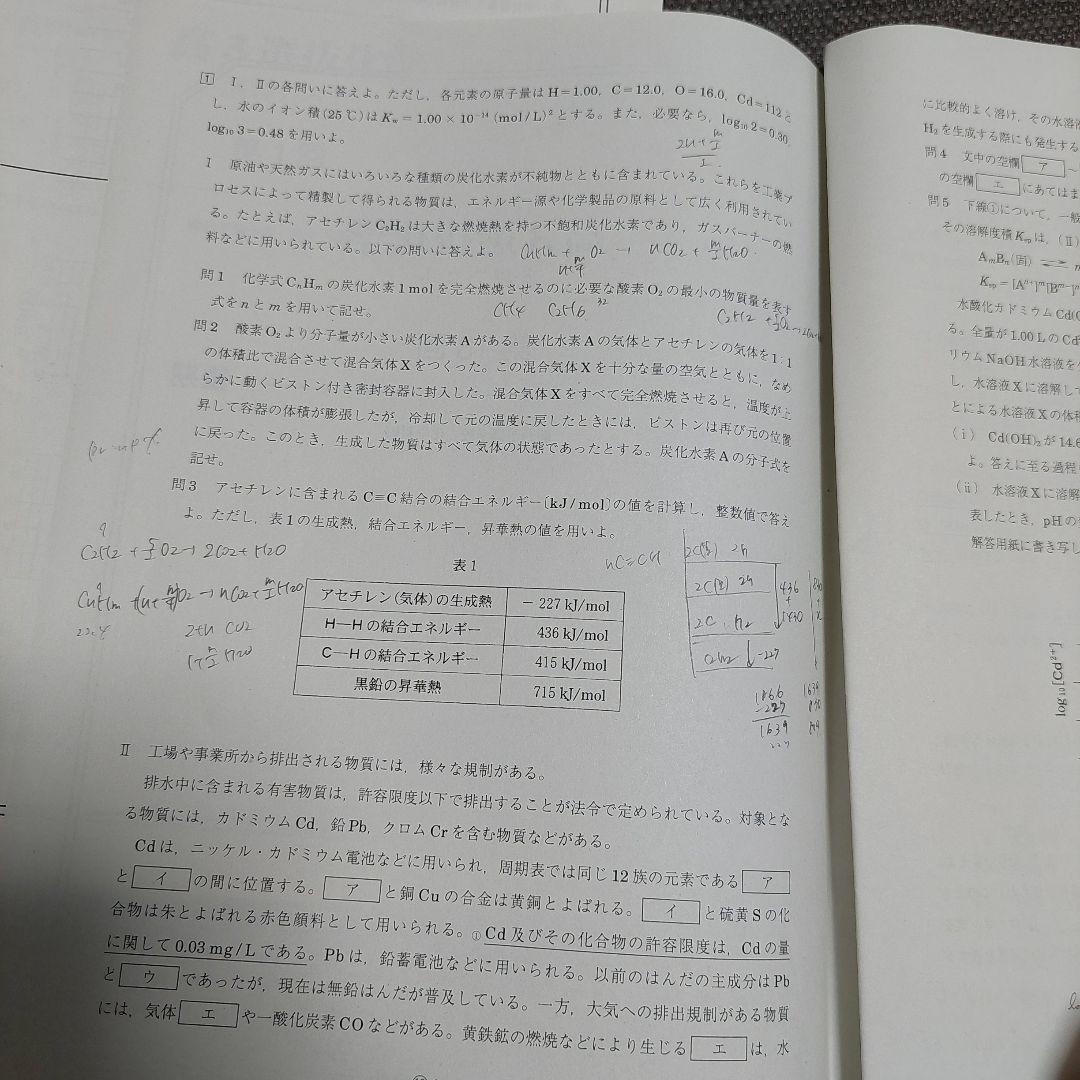 1 Ⅰ，Ⅱの各問いに答えよ。ただし，各元素の原子量はH=1.00，C=12.0，O=16.0，Cd=112と
し，水のイオン積(25℃)はKw = 1.00 × 10⁻¹⁴ (mol/L)²とする。また，必要なら，log₁₀ 2=0.30，
log₁₀ 3=0.48を用いよ。
Ⅰ 原油や天然ガスにはいろいろな種類の炭化水素が不純物とともに含まれている。これらを工業プ
ロセスによって精製して得られる物質は，エネルギー源や化学製品の原料として広く利用されてい
る。たとえば，アセチレンC₂H₂は大きな燃焼熱を持つ不飽和炭化水素であり，ガスバーナーの燃
料などに用いられている。以下の問いに答えよ。
CnHm + O2 → nCO2 + m/2 H2O
問1 化学式CnHmの炭化水素1molを完全燃焼させるのに必要な酸素O₂の最小の物質量を表す
式をnとmを用いて記せ。
CH4 C2H6 32
問2 酸素O₂より分子量が小さい炭化水素Aがある。炭化水素Aの気体とアセチレンの気体を1：1
の体積比で混合させて混合気体Xをつくった。この混合気体Xを十分な量の空気とともに，なめ
らかに動くピストン付き密封容器に封入した。混合気体Xをすべて完全燃焼させると，温度が上
昇して容器の体積が膨張したが，冷却して元の温度に戻したときには，ピストンは再び元の位置
に戻った。このとき，生成した物質はすべて気体の状態であったとする。炭化水素Aの分子式を
記せ。
問3 アセチレンに含まれるC≡C結合の結合エネルギー〔kJ/mol〕の値を計算し，整数値で答え
よ。ただし，表1の生成熱，結合エネルギー，昇華熱の値を用いよ。
C2H2 + 5/2 O2 → 2CO2 + H2O
表1
アセチレン(気体)の生成熱 － 227 kJ/mol
H－Hの結合エネルギー 436 kJ/mol
C－Hの結合エネルギー 415 kJ/mol
黒鉛の昇華熱 715 kJ/mol
22.4
2+n CO2
2C, H2
C2H2 -227
436
+
1430
1866
-227
1639
Ⅱ 工場や事業所から排出される物質には，様々な規制がある。
排水中に含まれる有害物質は，許容限度以下で排出することが法令で定められている。対象とな
る物質には，カドミウムCd，鉛Pb，クロムCrを含む物質などがある。
Cdは，ニッケル・カドミウム電池などに用いられ，周期表では同じ12族の元素である ア
と イ の間に位置する。 ア と銅Cuの合金は黄銅とよばれる。 イ と硫黄Sの化
合物は朱とよばれる赤色顔料として用いられる。①Cd及びその化合物の許容限度は，Cdの量
に関して0.03 mg/Lである。Pbは，鉛蓄電池などに用いられる。以前のはんだの主成分はPb
と ウ であったが，現在は無鉛はんだが普及している。一方，大気への排出規制がある物質
には，気体 エ や一酸化炭素COなどがある。黄鉄鉱の燃焼などにより生じる エ は，水
に比較的よく溶け，その水溶
H₂を生成する際にも発生する
問4 文中の空欄 ア ～
の空欄 エ にあてはま
問5 下線①について，一般
その溶解度積Kspは，(Ⅱ)
AmBn(固) ⇄
Ksp = [Aⁿ⁺]ᵐ[Bᵐ⁻]ⁿ
水酸化カドミウムCd(O
る。全量が1.00 LのCd
リウムNaOH水溶液を
し，水溶液Xに溶解して
とによる水溶液Xの体積
(ⅰ) Cd(OH)₂が14.6
よ。答えに至る過程
(ⅱ) 水溶液Xに溶解
表したとき，pHの
解答用紙に書き写し
log₁₀[Cd²⁺]